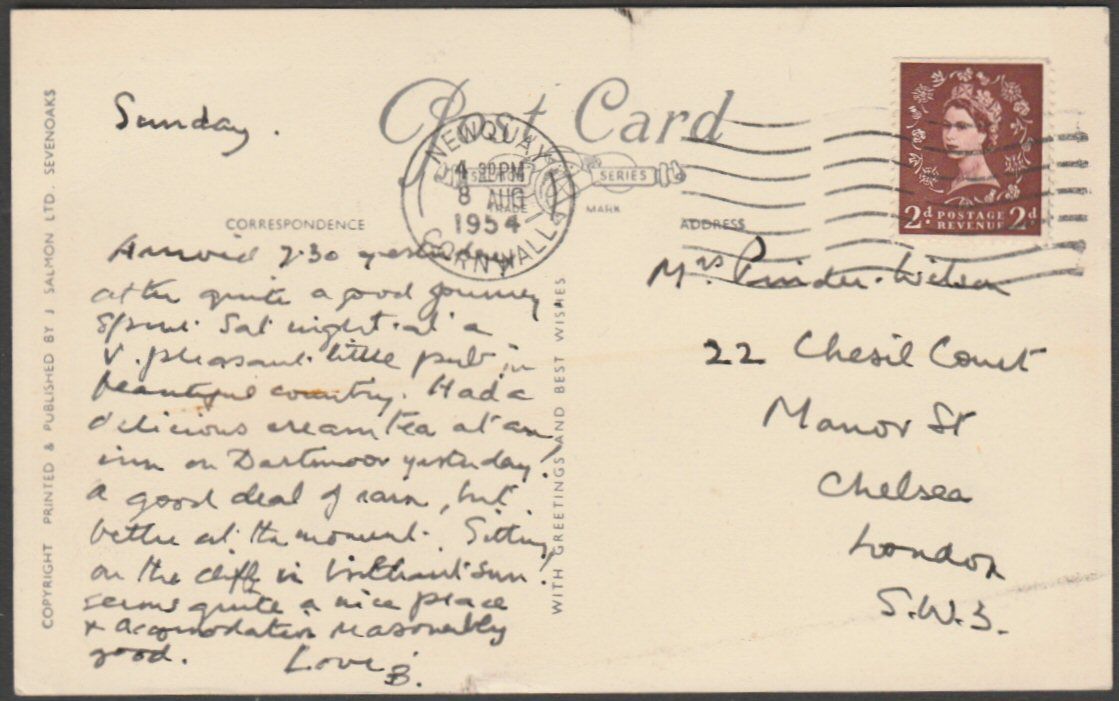 Post Card
NEWQUAY
4 30 PM
8 AUG
1954
CORNWALL
SERIES
TRADE MARK
2d POSTAGE 2d
REVENUE
CORRESPONDENCE
ADDRESS
COPYRIGHT PRINTED & PUBLISHED BY J SALMON LTD. SEVENOAKS
WITH GREETINGS AND BEST WISHES
Sunday.
Arrived 7.30 yesterday
after quite a good journey
Spent Sat night at a
v. pleasant little pub in
beautiful country. Had a
delicious cream tea at an
inn on Dartmoor yesterday!
a good deal of rain, but
better at the moment. Sitting
on the cliff in brilliant sun!
seems quite a nice place
+ accomodation reasonably
good. Love
B.
Mrs Pinder-Wilson
22 Chesil Court
Manor St
Chelsea
London
S.W.3.